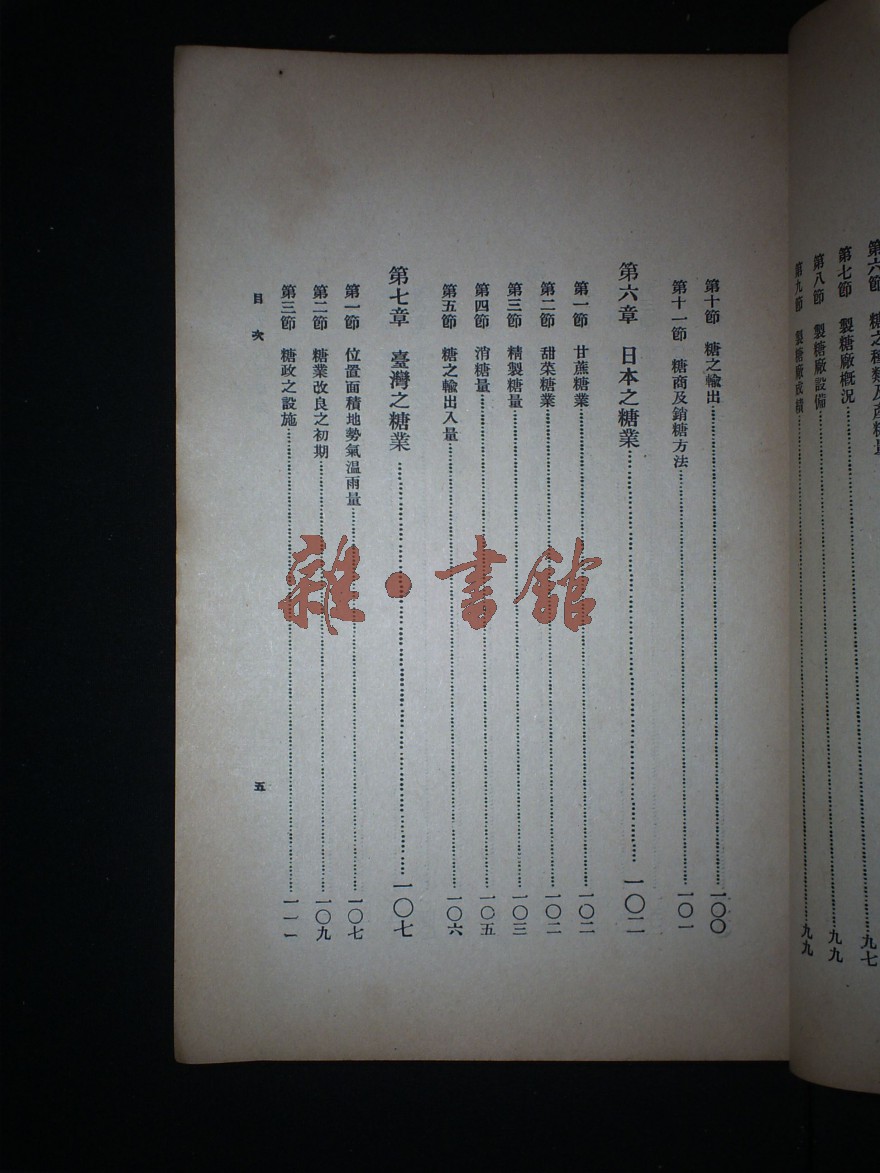 第六節　糖之種類及產糖量……九七
第七節　製糖廠概況……九九
第八節　製糖廠設備……九九
第九節　製糖廠成績……九九
第十節　糖之輸出……一〇〇
第十一節　糖商及銷糖方法……一〇一
第六章　日本之糖業……一〇二
第一節　甘蔗糖業……一〇二
第二節　甜菜糖業……一〇二
第三節　精製糖量……一〇三
第四節　消糖量……一〇五
第五節　糖之輸出入量……一〇六
第七章　臺灣之糖業……一〇七
第一節　位置面積地勢氣溫雨量……一〇七
第二節　糖業改良之初期……一〇九
第三節　糖政之設施……一一一
目次
五
雜·書館